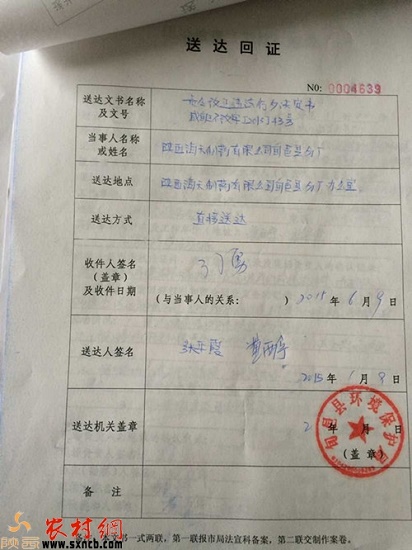 送达回证
N0: 0004639
送达文书名称
及文号
责令改正违法行为决定书
当事人名称
或姓名
陕西海天制药有限公司旬邑县分厂
送达地点
陕西海天制药有限公司旬邑县分厂办公室
送达方式
直接送达
收件人签名
(盖章)
及收件日期
(与当事人的关系: ) 2015 年 6 月 9 日
送达人签名
2015 年 6 月 9 日
送达机关盖章
旬邑县环境保护局
2 年 月 日
(盖章)
备 注
一式两联，第一联报市局法宣科备案，第二联交制作案卷。
陕西
农村網
www.sxncb.com